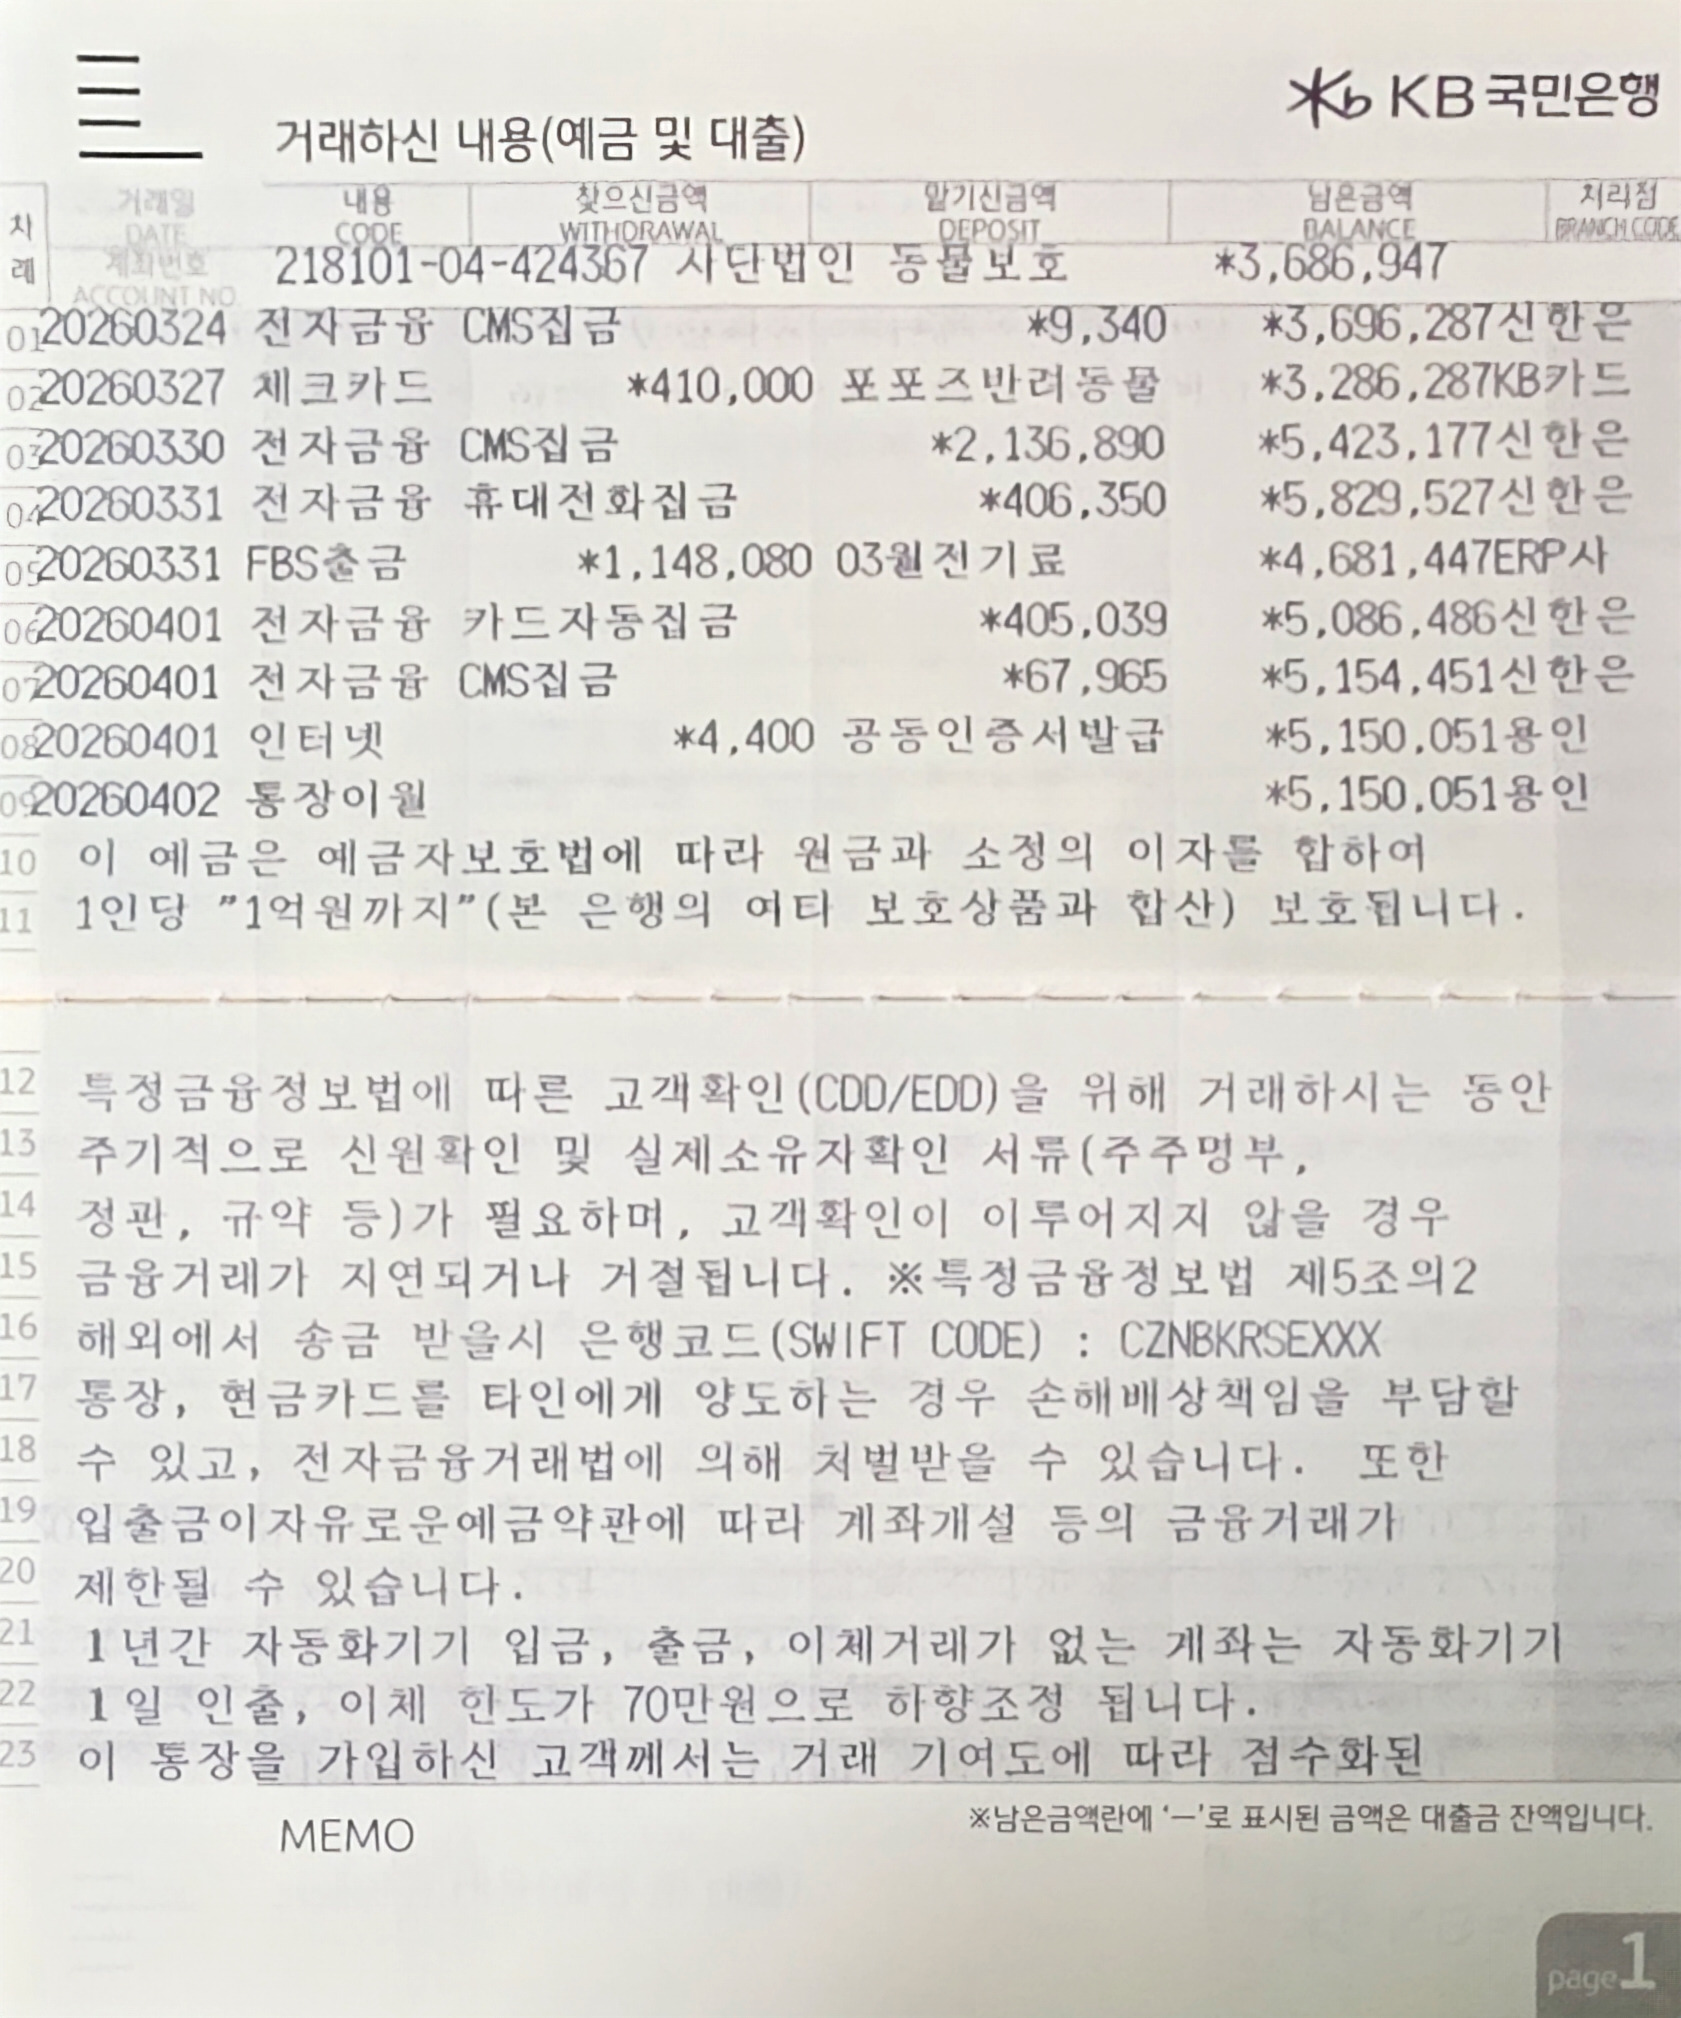 KB 국민은행
거래하신 내용(예금 및 대출)
차례 거래일 내용 찾으신금액 맡기신금액 남은금액 처리점
DATE CODE WITHDRAWAL DEPOSIT BALANCE BRANCH CODE
계좌번호 ACCOUNT NO. 218101-04-424367 사단법인 동물보호 *3,686,947
01 20260324 전자금융 CMS집금 *9,340 *3,696,287신한은
02 20260327 체크카드 *410,000 포포즈반려동물 *3,286,287KB카드
03 20260330 전자금융 CMS집금 *2,136,890 *5,423,177신한은
04 20260331 전자금융 휴대전화집금 *406,350 *5,829,527신한은
05 20260331 FBS출금 *1,148,080 03월전기료 *4,681,447ERP사
06 20260401 전자금융 카드자동집금 *405,039 *5,086,486신한은
07 20260401 전자금융 CMS집금 *67,965 *5,154,451신한은
08 20260401 인터넷 *4,400 공동인증서발급 *5,150,051용인
09 20260402 통장이월 *5,150,051용인
10 이 예금은 예금자보호법에 따라 원금과 소정의 이자를 합하여
11 1인당 "1억원까지"(본 은행의 여타 보호상품과 합산) 보호됩니다.
12 특정금융정보법에 따른 고객확인(CDD/EDD)을 위해 거래하시는 동안
13 주기적으로 신원확인 및 실제소유자확인 서류(주주명부,
14 정관, 규약 등)가 필요하며, 고객확인이 이루어지지 않을 경우
15 금융거래가 지연되거나 거절됩니다. ※특정금융정보법 제5조의2
16 해외에서 송금 받을시 은행코드(SWIFT CODE) : CZNBKRSEXXX
17 통장, 현금카드를 타인에게 양도하는 경우 손해배상책임을 부담할
18 수 있고, 전자금융거래법에 의해 처벌받을 수 있습니다. 또한
19 입출금이자유로운예금약관에 따라 계좌개설 등의 금융거래가
20 제한될 수 있습니다.
21 1년간 자동화기기 입금, 출금, 이체거래가 없는 계좌는 자동화기기
22 1일 인출, 이체 한도가 70만원으로 하향조정 됩니다.
23 이 통장을 가입하신 고객께서는 거래 기여도에 따라 점수화된
※남은금액란에 '−'로 표시된 금액은 대출금 잔액입니다.
MEMO
page1